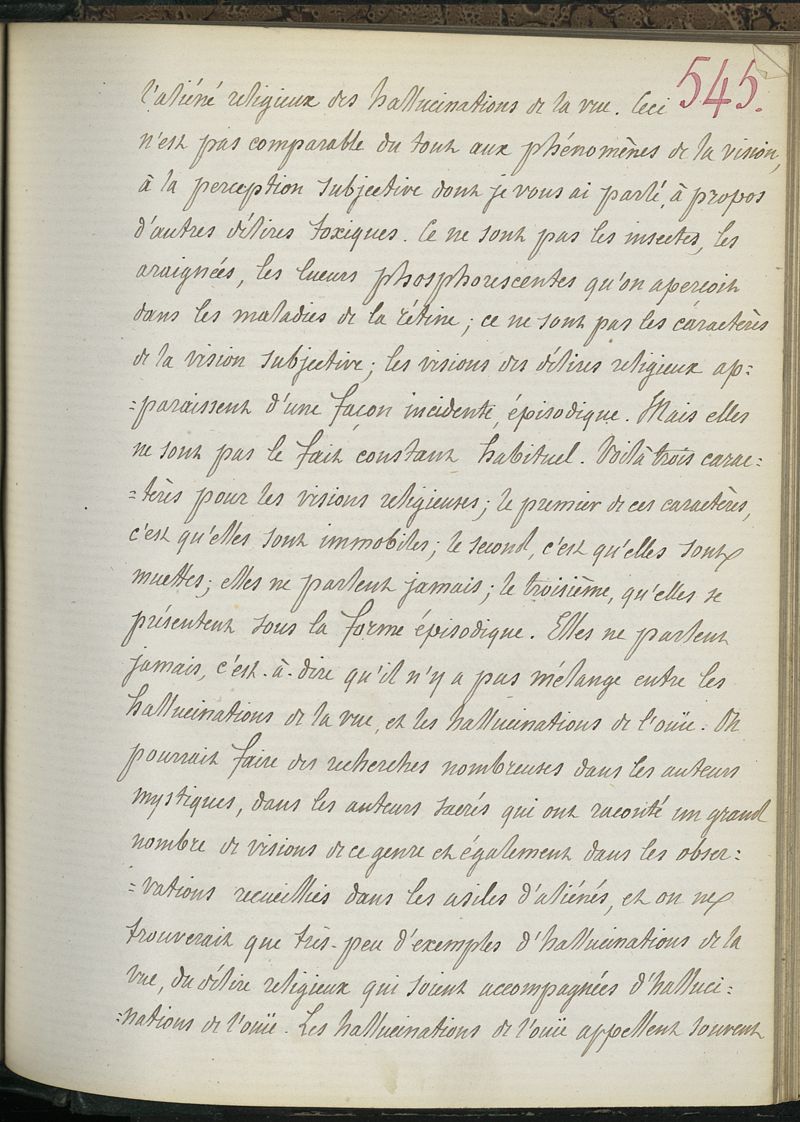 545.
l'aliéné religieux des hallucinations de la vue. Ceci
n'est pas comparable du tout aux phénomènes de la vision,
à la perception subjective dont je vous ai parlé, à propos
d'autres délires toxiques. Ce ne sont pas les insectes, les
araignées, les lueurs phosphorescentes qu'on aperçoit
dans les maladies de la rétine; ce ne sont pas les caractères
de la vision subjective; les visions des délires religieux ap=
=paraissent d'une façon incidente, épisodique. Mais elles
ne sont pas le fait constant habituel. Voilà trois carac=
=tères pour les visions religieuses; le premier de ces caractères,
c'est qu'elles sont immobiles; le second, c'est qu'elles sont
muettes; elles ne parlent jamais; le troisième, qu'elles se
présentent sous la forme épisodique. Elles ne parlent
jamais, c'est-à-dire qu'il n'y a pas mélange entre les
hallucinations de la vue, et les hallucinations de l'ouïe. On
pourrait faire des recherches nombreuses dans les auteurs
mystiques, dans les auteurs sacrés qui ont raconté un grand
nombre de visions de ce genre et également dans les obser=
=vations recueillies dans les asiles d'aliénés, et on ne
trouverait que très-peu d'exemples d'hallucinations de la
vue, du délire religieux qui soient accompagnées d'halluci=
=nations de l'ouïe. Les hallucinations de l'ouïe appellent souvent